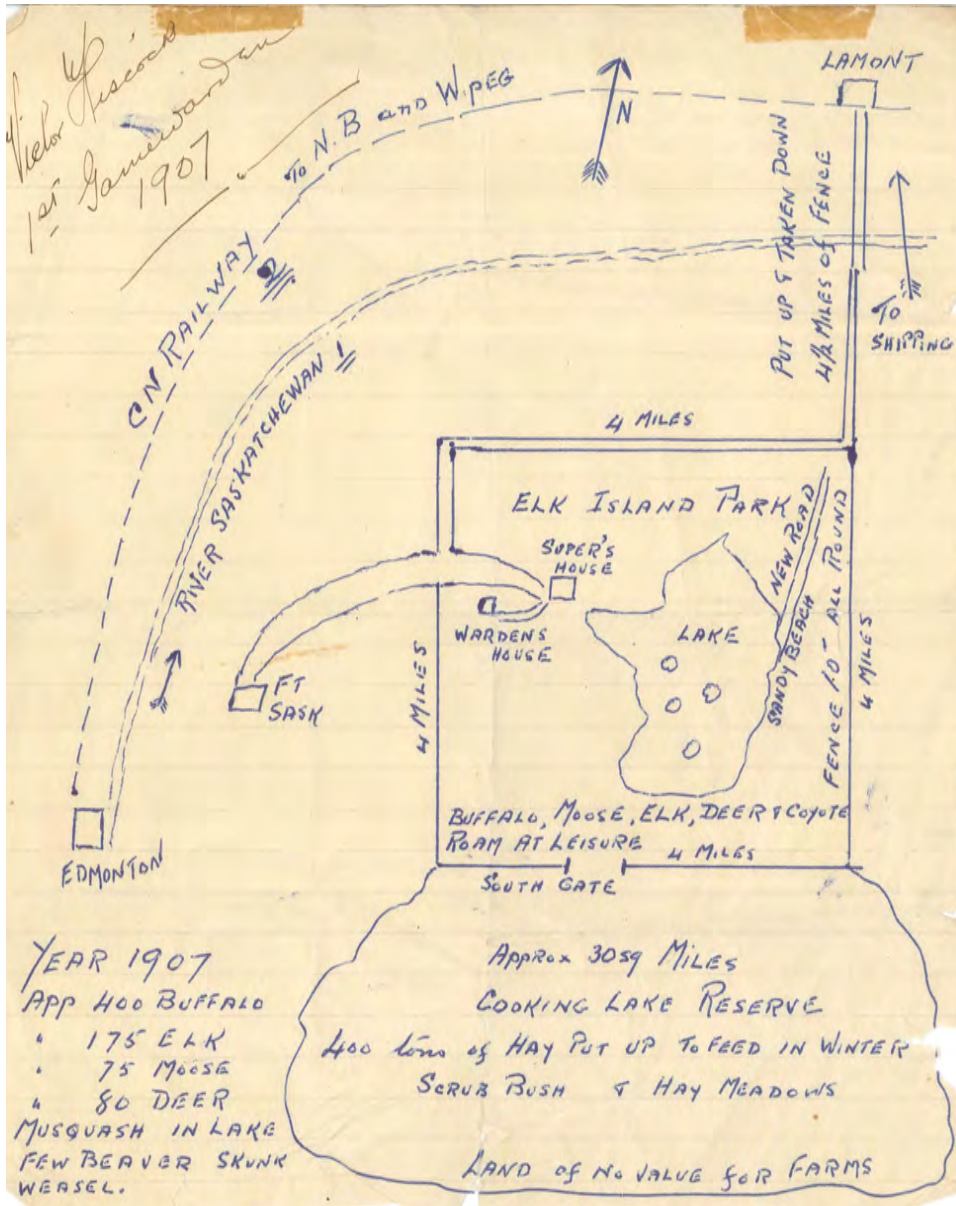 Victor Hiscock
1st Gamewarden
1907
LAMONT
TO N.B and W.PEG
N
CN RAILWAY 2
RIVER SASKATCHEWAN 1
PUT UP & TAKEN DOWN
4 1/2 MILES OF FENCE
TO
SHIPPING
4 MILES
ELK ISLAND PARK
SUPER'S
HOUSE
WARDENS
HOUSE
LAKE
NEW ROAD
SANDY BEACH
FENCE 10- ALL ROUND
4 MILES
4 MILES
FT
SASK
EDMONTON
BUFFALO, MOOSE, ELK, DEER & COYOTE
ROAM AT LEISURE
4 MILES
SOUTH GATE
YEAR 1907
APP 400 BUFFALO
" 175 ELK
" 75 MOOSE
" 80 DEER
MUSQUASH IN LAKE
FEW BEAVER SKUNK
WEASEL.
APPROX 30 SQ MILES
COOKING LAKE RESERVE
400 tons of HAY PUT UP TO FEED IN WINTER
SCRUB BUSH & HAY MEADOWS
LAND of NO VALUE foR FARMS